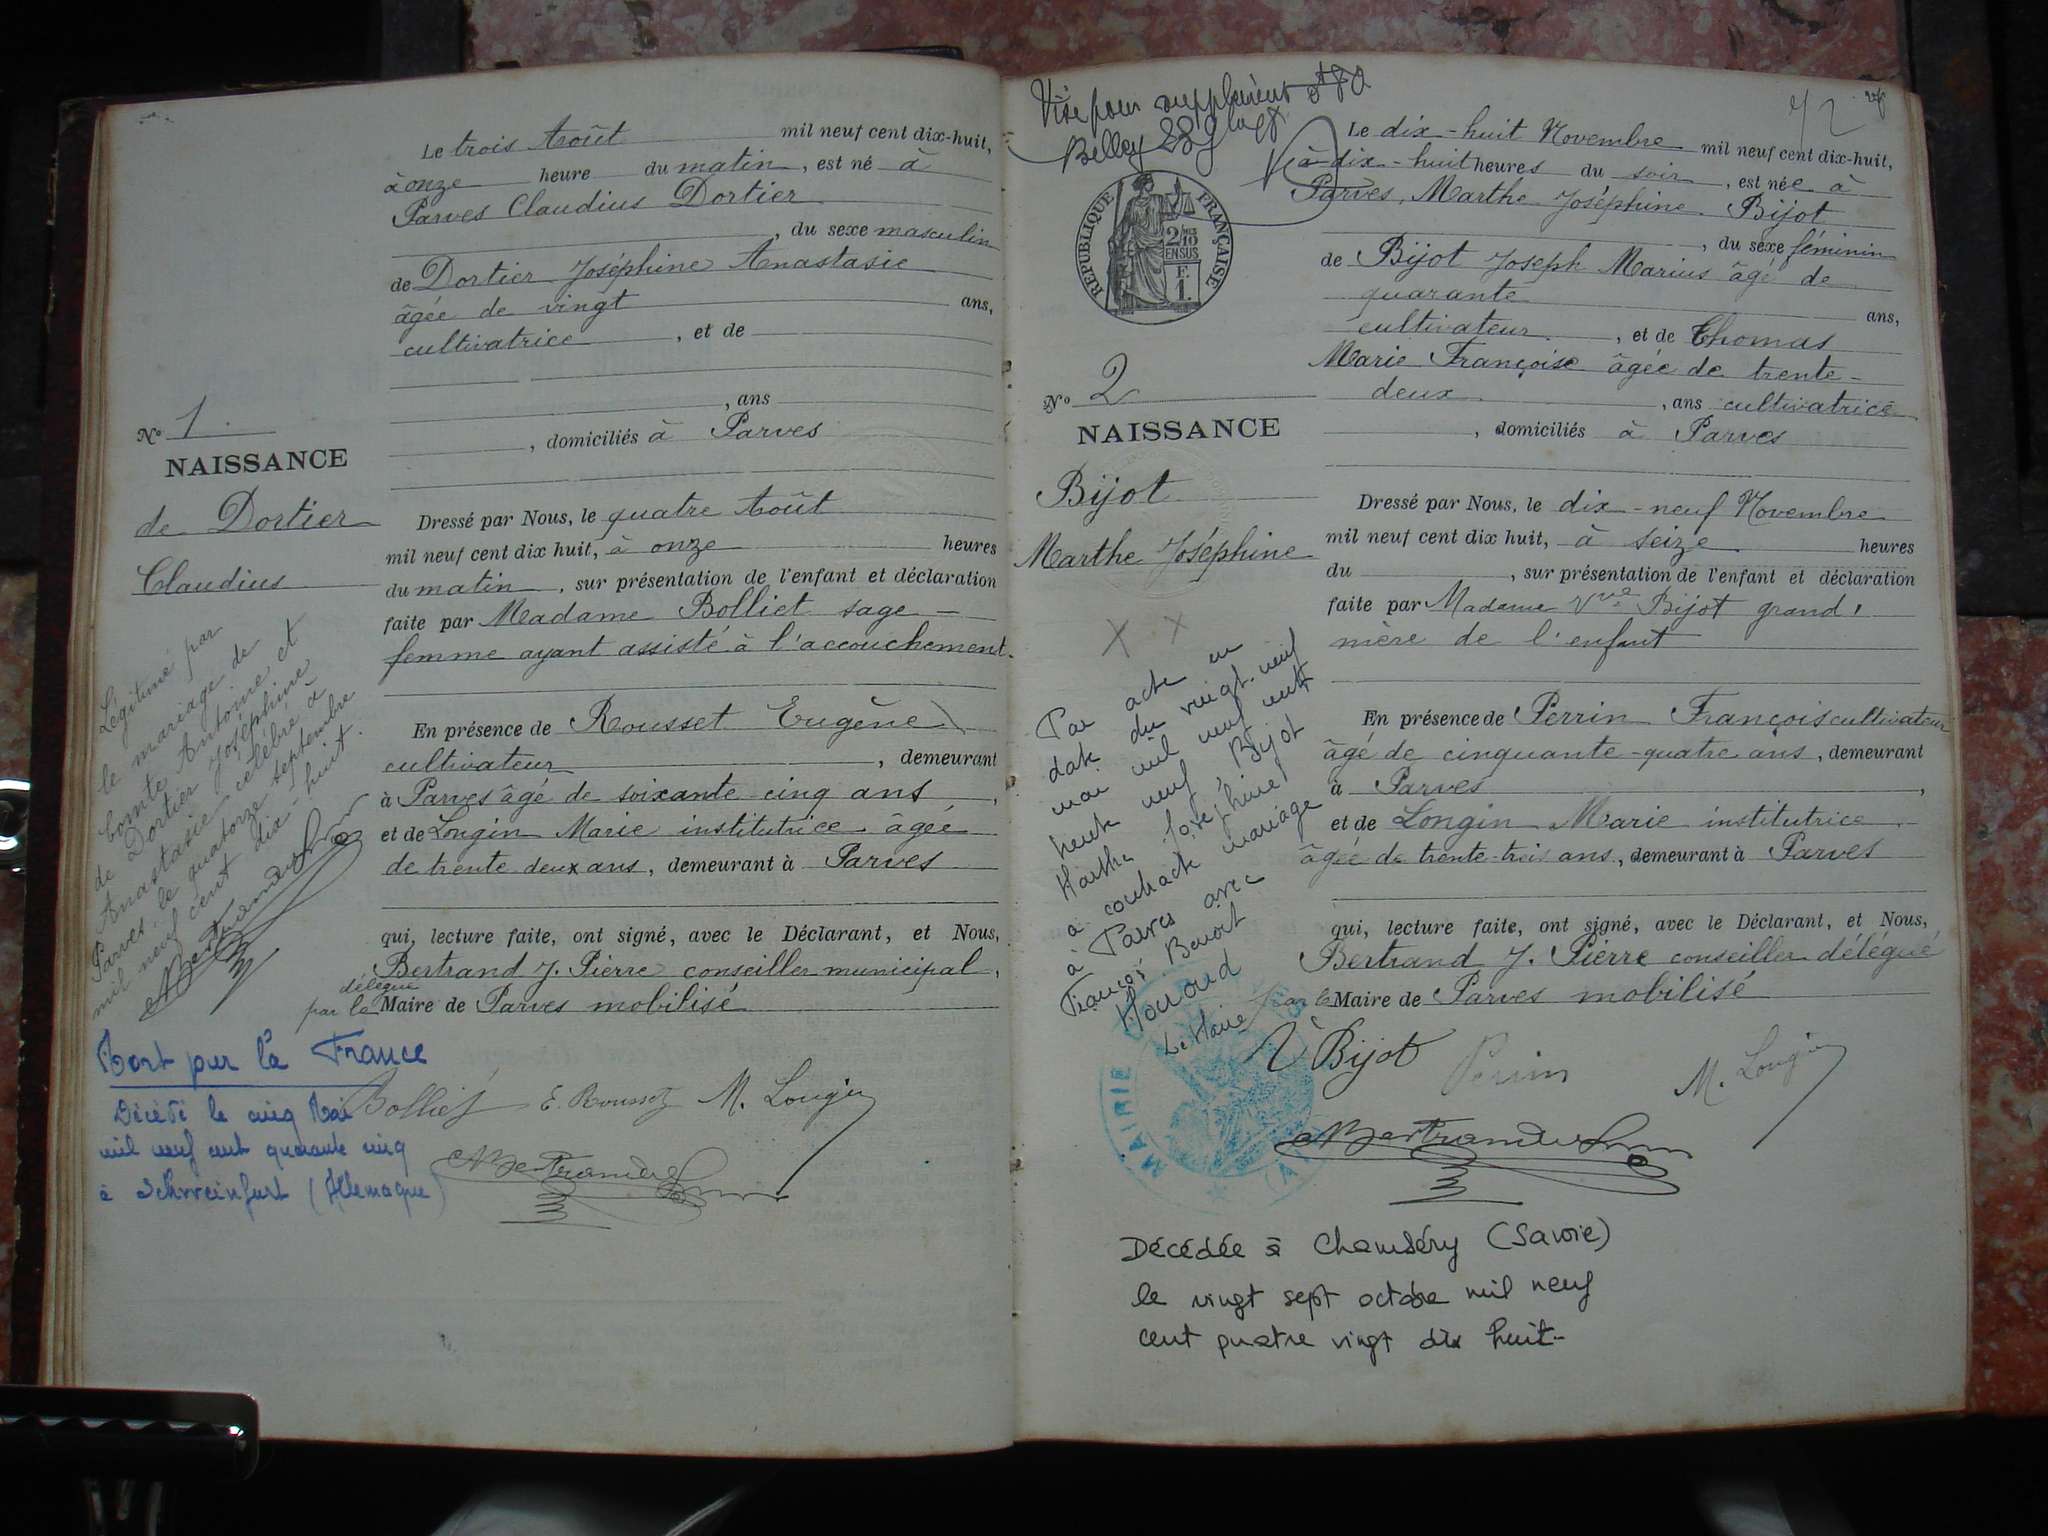 Le trois Août mil neuf cent dix-huit,
à onze heure du matin, est né à
Parves Claudius Dortier
, du sexe masculin
de Dortier Joséphine Anastasie
âgée de vingt ans,
cultivatrice, et de
, ans
, domiciliés à Parves
No 1.
NAISSANCE
de Dortier
Claudius
Dressé par Nous, le quatre Août
mil neuf cent dix huit, à onze heures
du matin, sur présentation de l'enfant et déclaration
faite par Madame Bolliet sage-
femme ayant assisté à l'accouchement.
En présence de Rousset Eugène
cultivateur, demeurant
à Parves âgé de soixante cinq ans,
et de Longin Marie institutrice âgée
de trente deux ans, demeurant à Parves
qui, lecture faite, ont signé, avec le Déclarant, et Nous,
Bertrand J. Pierre conseiller municipal,
délégué
par le Maire de Parves mobilisé
Légitimé par
le mariage de
Comte Antoine et
de Dortier Joséphine
Anastasie célébré à
Parves, le quatorze septembre
mil neuf cent dix huit.
Mort pur la France
Décédé le cinq Mai
mil neuf cent quarante cinq
à Schweinfurt (Allemagne)
Bolliet E. Rousset M. Longin
Vise pour supplément
Belley
42
RÉPUBLIQUE FRANÇAISE
2/10
EN SUS
F.
1.
Le dix-huit Novembre mil neuf cent dix-huit,
à dix-huit heures du soir, est née à
Parves, Marthe Joséphine Bijot
, du sexe féminin
de Bijot Joseph Marius âgé de
quarante ans,
cultivateur, et de Thomas
Marie Françoise âgée de trente-
deux, ans cultivatrice
, domiciliés à Parves
No 2
NAISSANCE
Bijot
Marthe Joséphine
Dressé par Nous, le dix-neuf Novembre
mil neuf cent dix huit, à seize heures
du , sur présentation de l'enfant et déclaration
faite par Madame Vve Bijot grand'
mère de l'enfant
En présence de Perrin François cultivateur
âgé de cinquante-quatre ans, demeurant
à Parves,
et de Longin Marie institutrice
âgée de trente-trois ans, demeurant à Parves
qui, lecture faite, ont signé, avec le Déclarant, et Nous,
Bertrand J. Pierre conseiller délégué
par le Maire de Parves mobilisé
X X
Par acte en
date du vingt-neuf
mai mil neuf cent
trente neuf, Bijot
Marthe Joséphine
a contracté mariage
à Parves avec
François Benoit
Le Maire
MAIRIE
Bijot Perrin M. Longin
Décédée à Chambéry (Savoie)
le vingt sept octobre mil neuf
cent quatre vingt dix huit-